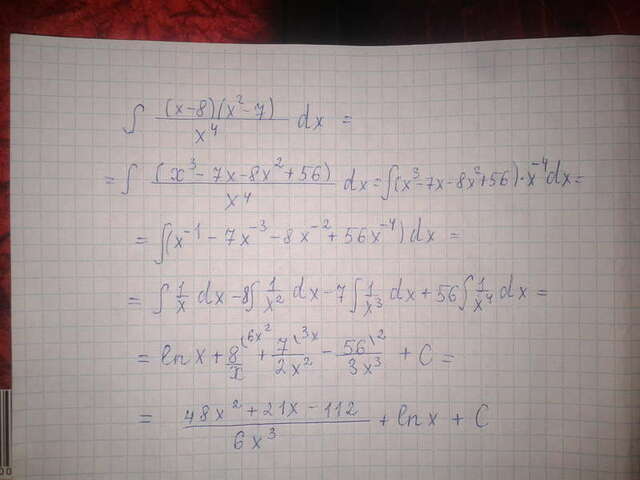 ∫ (x-8)(x²-7)/x⁴ dx =
= ∫ (x³-7x-8x²+56)/x⁴ dx = ∫(x³-7x-8x²+56)·x⁻⁴dx =
= ∫(x⁻¹ - 7x⁻³ - 8x⁻² + 56x⁻⁴)dx =
= ∫ 1/x dx - 8∫ 1/x² dx - 7∫ 1/x³ dx + 56∫ 1/x⁴ dx =
= ln x + 8/x \6x² + 7/2x² \3x - 56/3x³ \2 + C =
= (48x² + 21x - 112)/6x³ + ln x + C